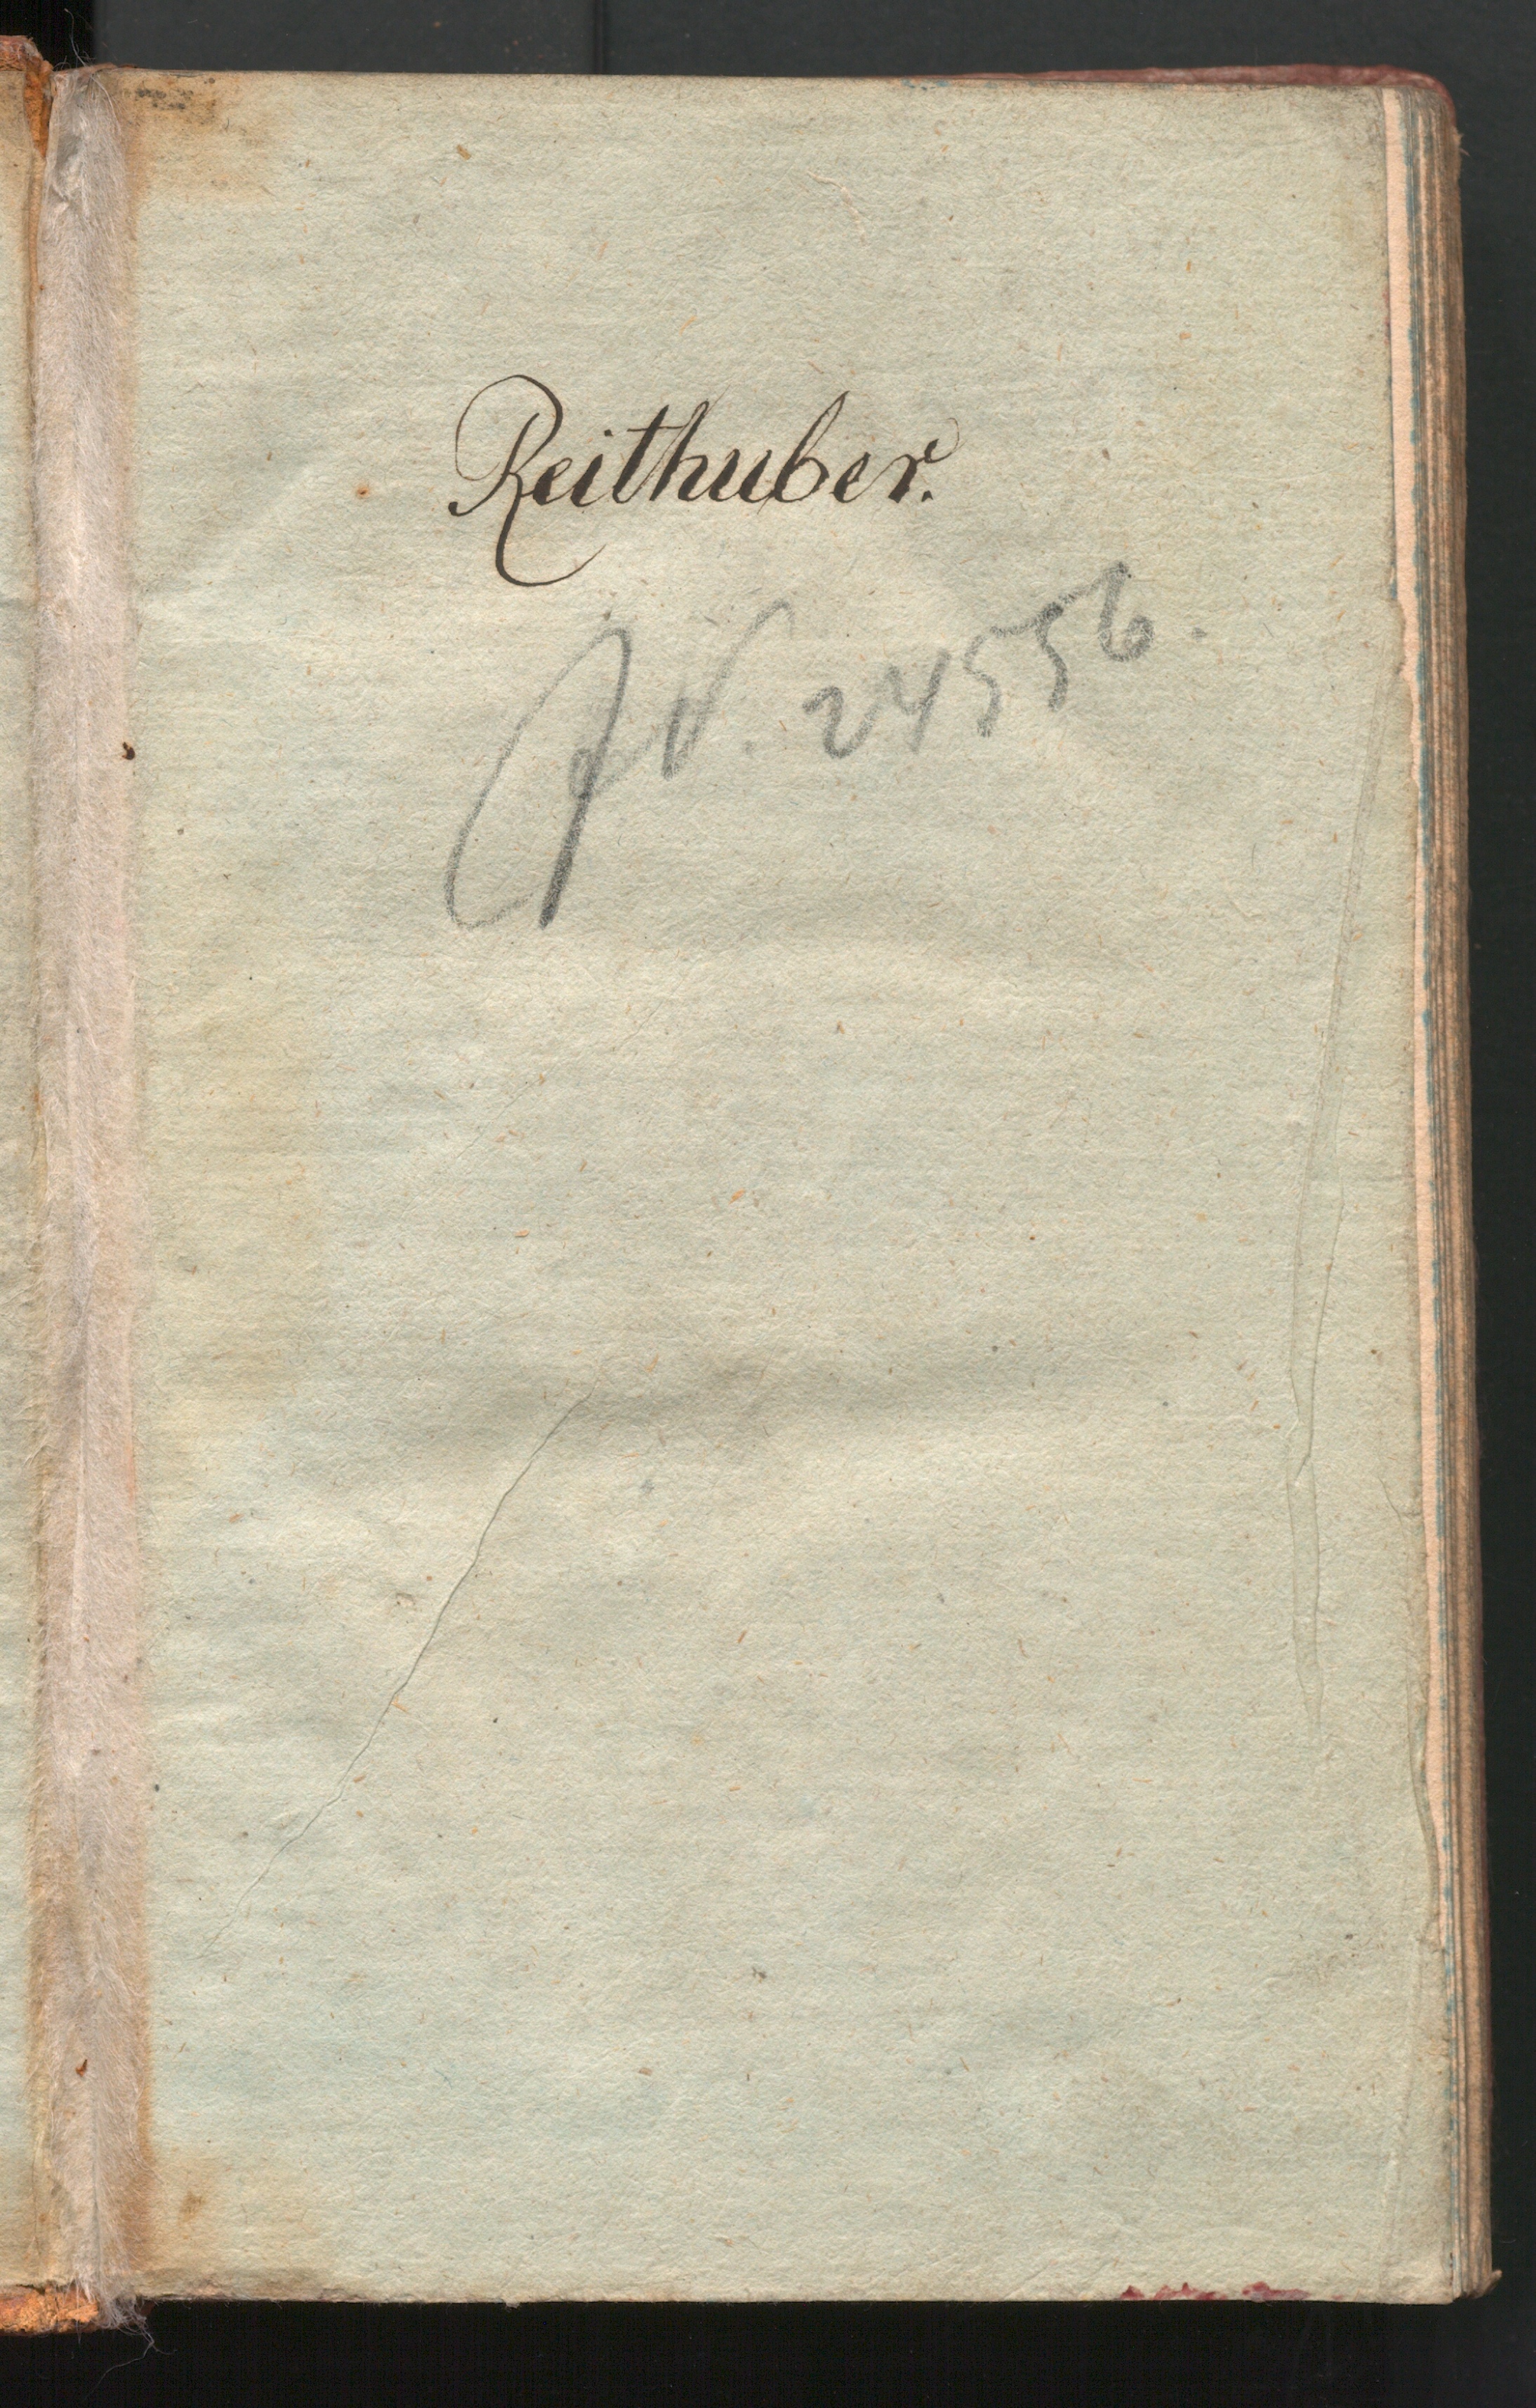 Reithuber.
JN. 24556.